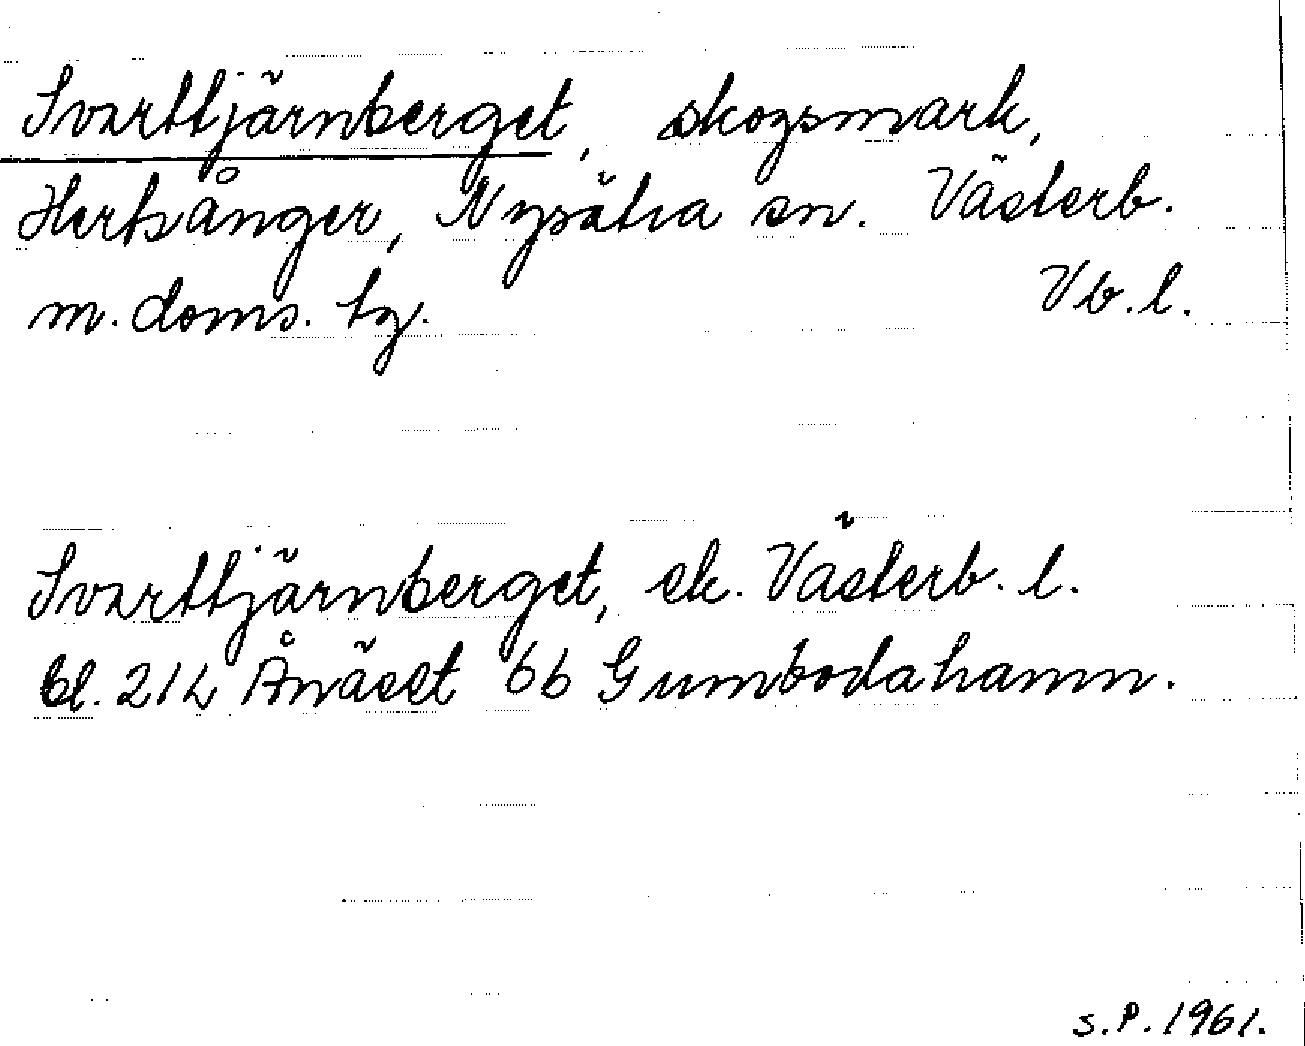 Svarttjärnberget, skogsmark,
Hertsånger, Nysätra sn. Västerb.
m. doms. tg. Vb. l.
Svarttjärnberget, ek. Västerb. l.
bl. 21L Ånäset 6b Gumbodahamn.
S.P. 1961.